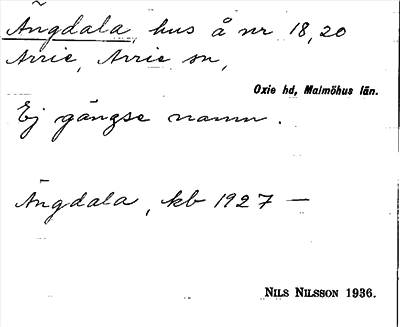 Ängdala, hus å nr 18,20
Arrie, Arrie sn,
Oxie hd, Malmöhus län.
Ej gängse namn.
Ängdala, kb 1927 —
NILS NILSSON 1936.